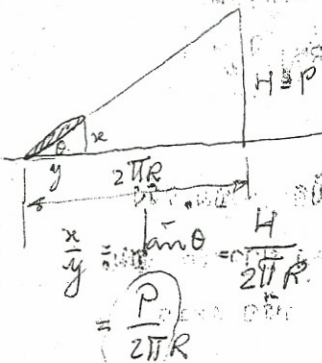 H = P
θ x
y 2πR
x/y = tan θ = H/2πR
= P/2πR